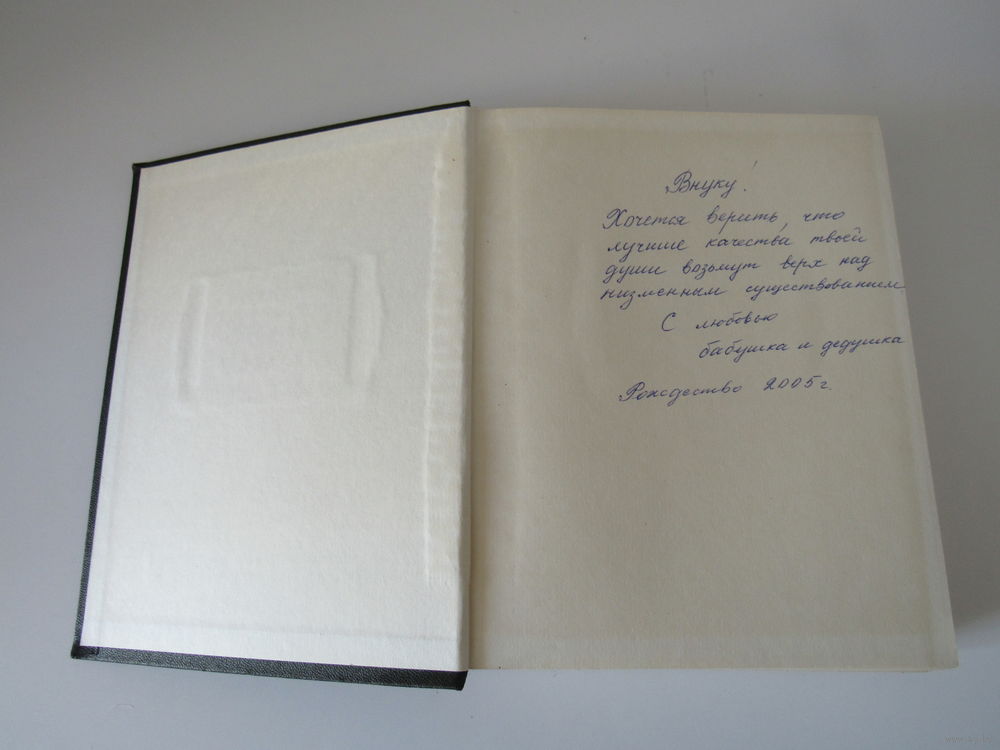 Внуку!
Хочется верить, что
лучшие качества твоей
души возьмут верх над
низменным существованием
С любовью
бабушка и дедушка
Рождество 2005г.